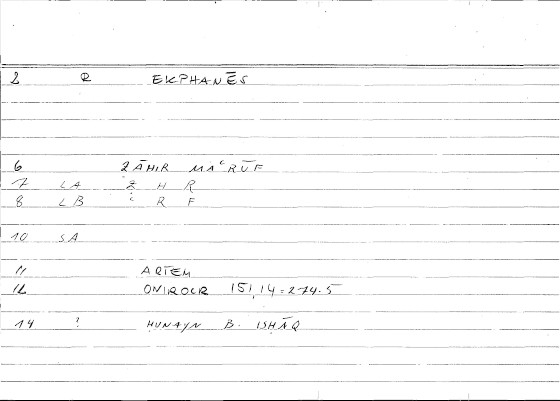 2 R EKPHANĒS
6 ẒĀHIR MAʿRŪF
7 LA Ẓ H R
8 LB ʿ R F
10 SA
11 ARTEM
12 ONIROCR 151,14=274.5
14 ? ḤUNAYN B. ISḤĀQ